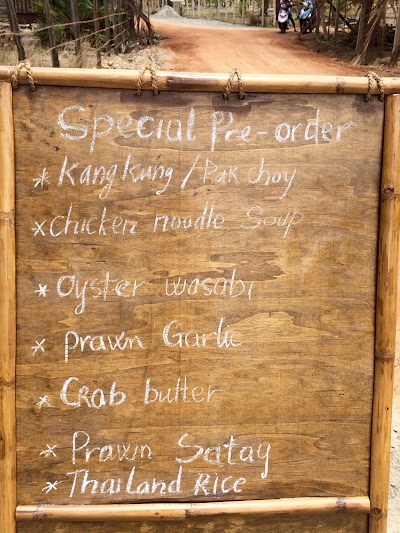 Special Pre-order
* Kangkung / Pak choy
* chicken noodle Soup
* Oyster wasabi
* prawn Garlic
* Crab butter
* Prawn Satay
* Thailand Rice